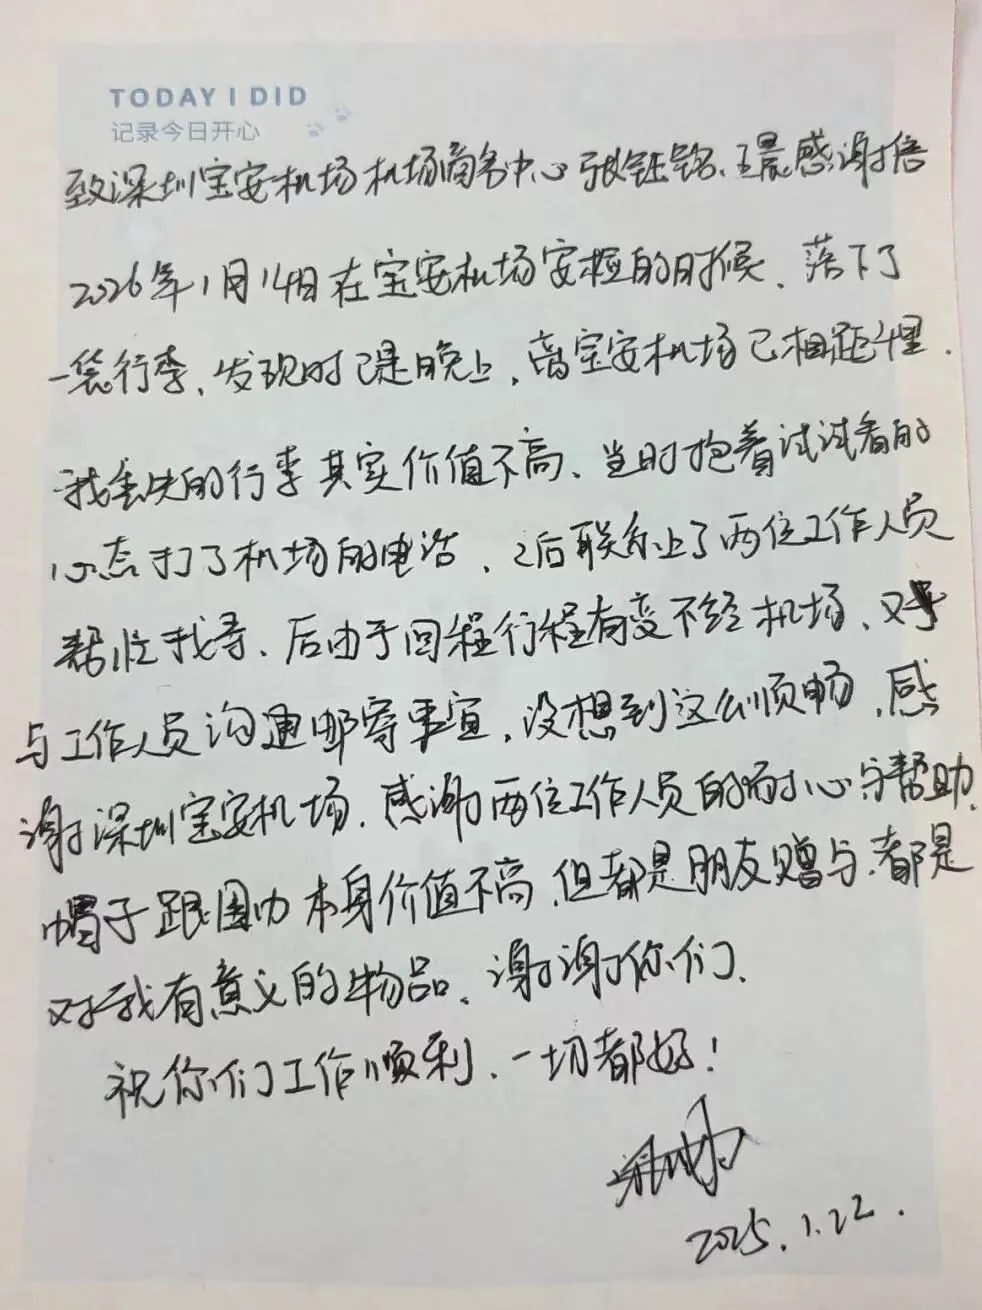 TODAY I DID
记录今日开心
致深圳宝安机场机场商务中心张钰铭、王晨感谢信
2026年1月14日在宝安机场安检的时候、落下了
一袋行李、发现时已是晚上，离宝安机场已相距千里.
我丢失的行李其实价值不高、当时抱着试试看的
心态打了机场的电话、之后联系上了两位工作人员
帮忙找寻、后由于回程行程有变不经机场、
与工作人员沟通邮寄事宜，没想到这么顺畅，感
谢深圳宝安机场.感谢两位工作人员的耐心与帮助.
帽子跟围巾本身价值不高，但都是朋友赠与.都是
对我有意义的物品、谢谢你们、
祝你们工作顺利、一切都好！
2025.1.22.